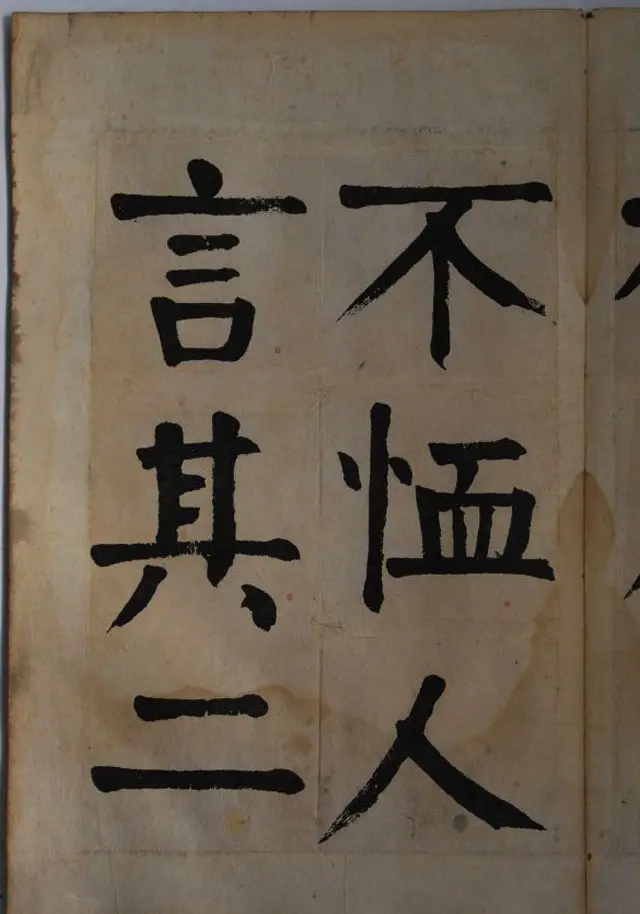 不恤人
言其二